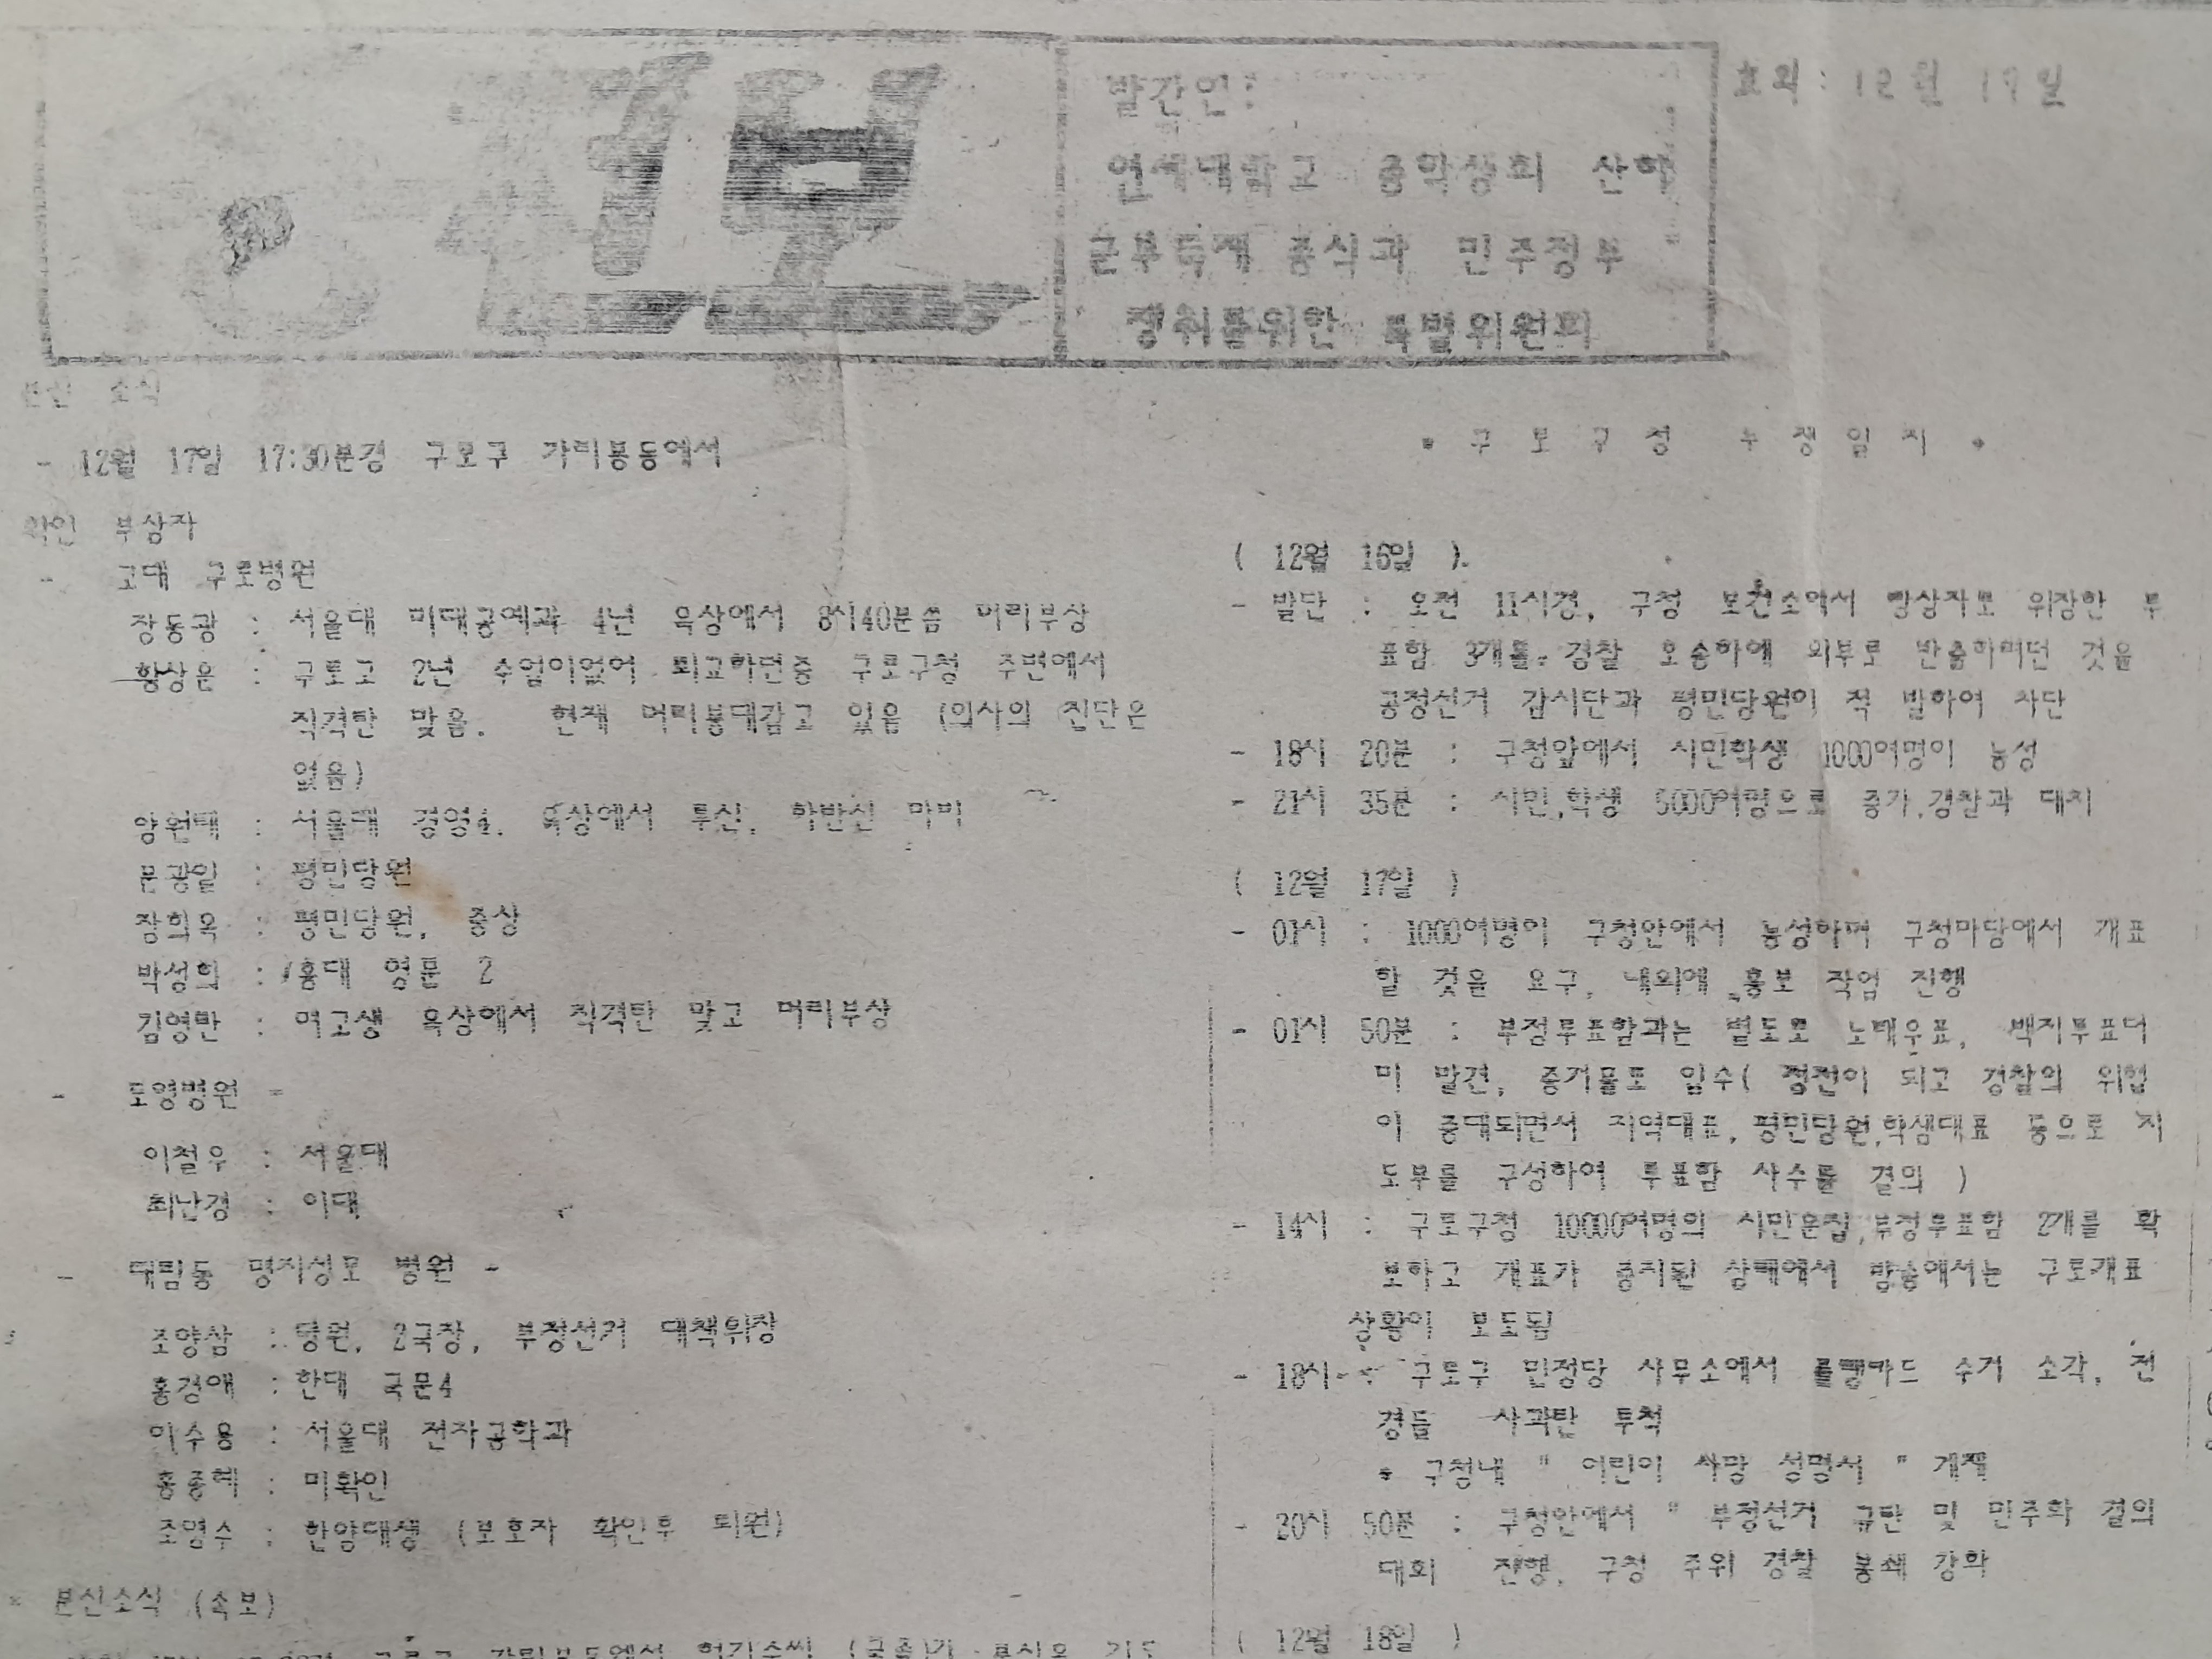 발간인:
연세대학교 총학생회 산하
군부독재 종식과 민주정부
쟁취를위한 특별위원회
호외: 12월 19일
분신 소식
- 12월 17일 17:30분경 구로구 가리봉동에서
확인 부상자
- 고대 구로병원
장동광 : 서울대 미대공예과 4년 옥상에서 8시40분쯤 머리부상
황상운 : 구로고 2년 수업이없어 퇴교하던중 구로구청 주변에서
직격탄 맞음. 현재 머리붕대감고 있음 (의사의 진단은
없음)
양원태 : 서울대 경영4. 옥상에서 투신, 하반신 마비
문광일 : 평민당원
장희옥 : 평민당원, 중상
박성희 : 홍대 영문 2
김영만 : 여고생 옥상에서 직격탄 맞고 머리부상
- 도영병원 -
이철우 : 서울대
최난경 : 이대
- 대림동 명지성모 병원 -
조양삼 : 당원, 2국장, 부정선거 대책위장
홍경애 : 한대 국문4
이수용 : 서울대 전자공학과
홍종혜 : 미확인
조영수 : 한양대생 (보호자 확인후 퇴원)
* 분신소식 (속보)
구로구 가리봉동에서
* 구 로 구 청 투 쟁 일 지 *
( 12월 16일 )
- 발단 : 오전 11시경, 구청 보건소에서 빵상자로 위장한 투
표함 3개를 경찰 호송하에 외부로 반출하려던 것을
공정선거 감시단과 평민당원이 적 발하여 차단
- 18시 20분 : 구청앞에서 시민학생 1000여명이 농성
- 21시 35분 : 시민,학생 5000여명으로 증가,경찰과 대치
( 12월 17일 )
- 01시 : 1000여명이 구청안에서 농성하며 구청마당에서 개표
할 것을 요구, 내외에 홍보 작업 진행
- 01시 50분 : 부정투표함과는 별도로 노태우표, 백지투표더
미 발견, 증거물로 입수( 정전이 되고 경찰의 위협
이 증대되면서 지역대표,평민당원,학생대표 등으로 지
도부를 구성하여 투표함 사수를 결의 )
- 14시 : 구로구청 10000여명의 시민운집,부정투표함 2개를 확
보하고 개표가 중지된 상태에서 방송에서는 구로개표
상황이 보도됨
- 18시 : 구로구 민정당 사무소에서 플랭카드 수거 소각, 전
경들 사과탄 투척
* 구청내 " 어린이 사망 성명서 " 게재
- 20시 50분 : 구청안에서 " 부정선거 규탄 및 민주화 결의
대회 진행, 구청 주위 경찰 봉쇄 강화
( 12월 18일 )